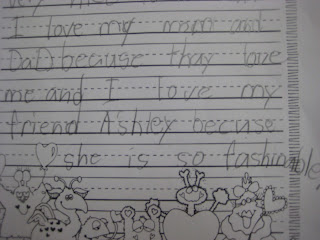 I love my mom and
DaD because thay love
me and I love my
friend Ashley becuse
she is so fashinble